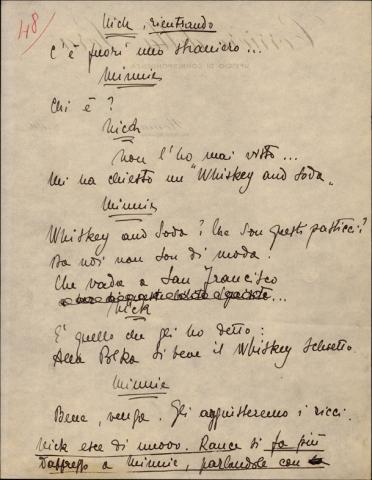 48
Nick, rientrando
C'è fuori uno straniero...
Minnie
Chi è?
Nick
Non l'ho mai visto...
Mi ha chiesto un "Whiskey and Soda"
Minnie
Whiskey and Soda? Che son questi pasticci?
Da noi non son di moda.
Che vada a San Francisco
Nick
È quello che gli ho detto:
Alla Polka si beve il Whiskey schietto.
Minnie
Bene, venga. Gli aggiusteremo i ricci.
Nick esce di nuovo. Rance si fa più
dappresso a Minnie, parlandole con